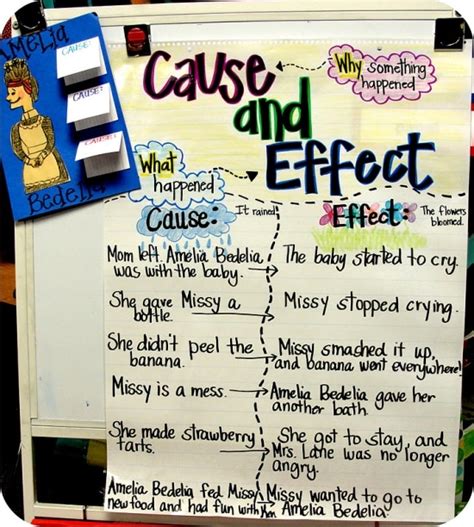 AMELIA
CAUSE?
CAUSE?
CAUSE?
BEDELIA
Cause
and
Effect
Why something
happened
What
happened
Cause:
It rained.
Effect:
The flowers
bloomed.
Mom left. Amelia Bedelia
was with the baby.
The baby started to cry.
She gave Missy a
bottle.
Missy stopped crying.
She didn't peel the
banana.
Missy smashed it up,
and banana went everywhere!
Missy is a mess.
Amelia Bedelia gave her
another bath.
She made strawberry
tarts.
She got to stay, and
Mrs. Lane was no longer
angry.
Amelia Bedelia fed Missy
new food and had fun with
Missy wanted to go to
Amelia Bedelia.